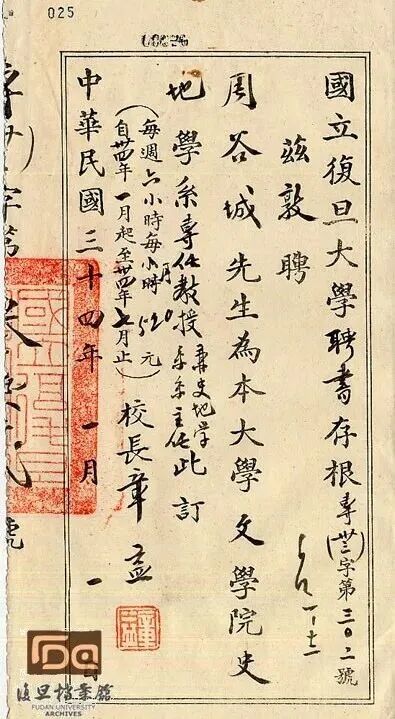 025
國立復旦大學聘書存根專(卅三)字第三〇二號
茲敦聘
周谷城先生為本大學文學院史
地學系專任教授兼史地學系系主任此訂
(每週六小時每小時月520元
自卅四年一月起至卅四年七月止)
校長章益
中華民國三十四年一月一日
字第
號
復旦檔案館
FUDAN UNIVERSITY
ARCHIVES